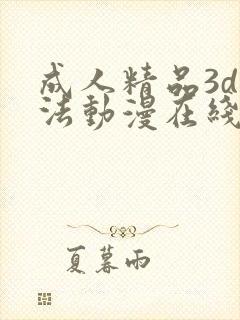 成人精品3d
法動漫在綫
夏暮雨